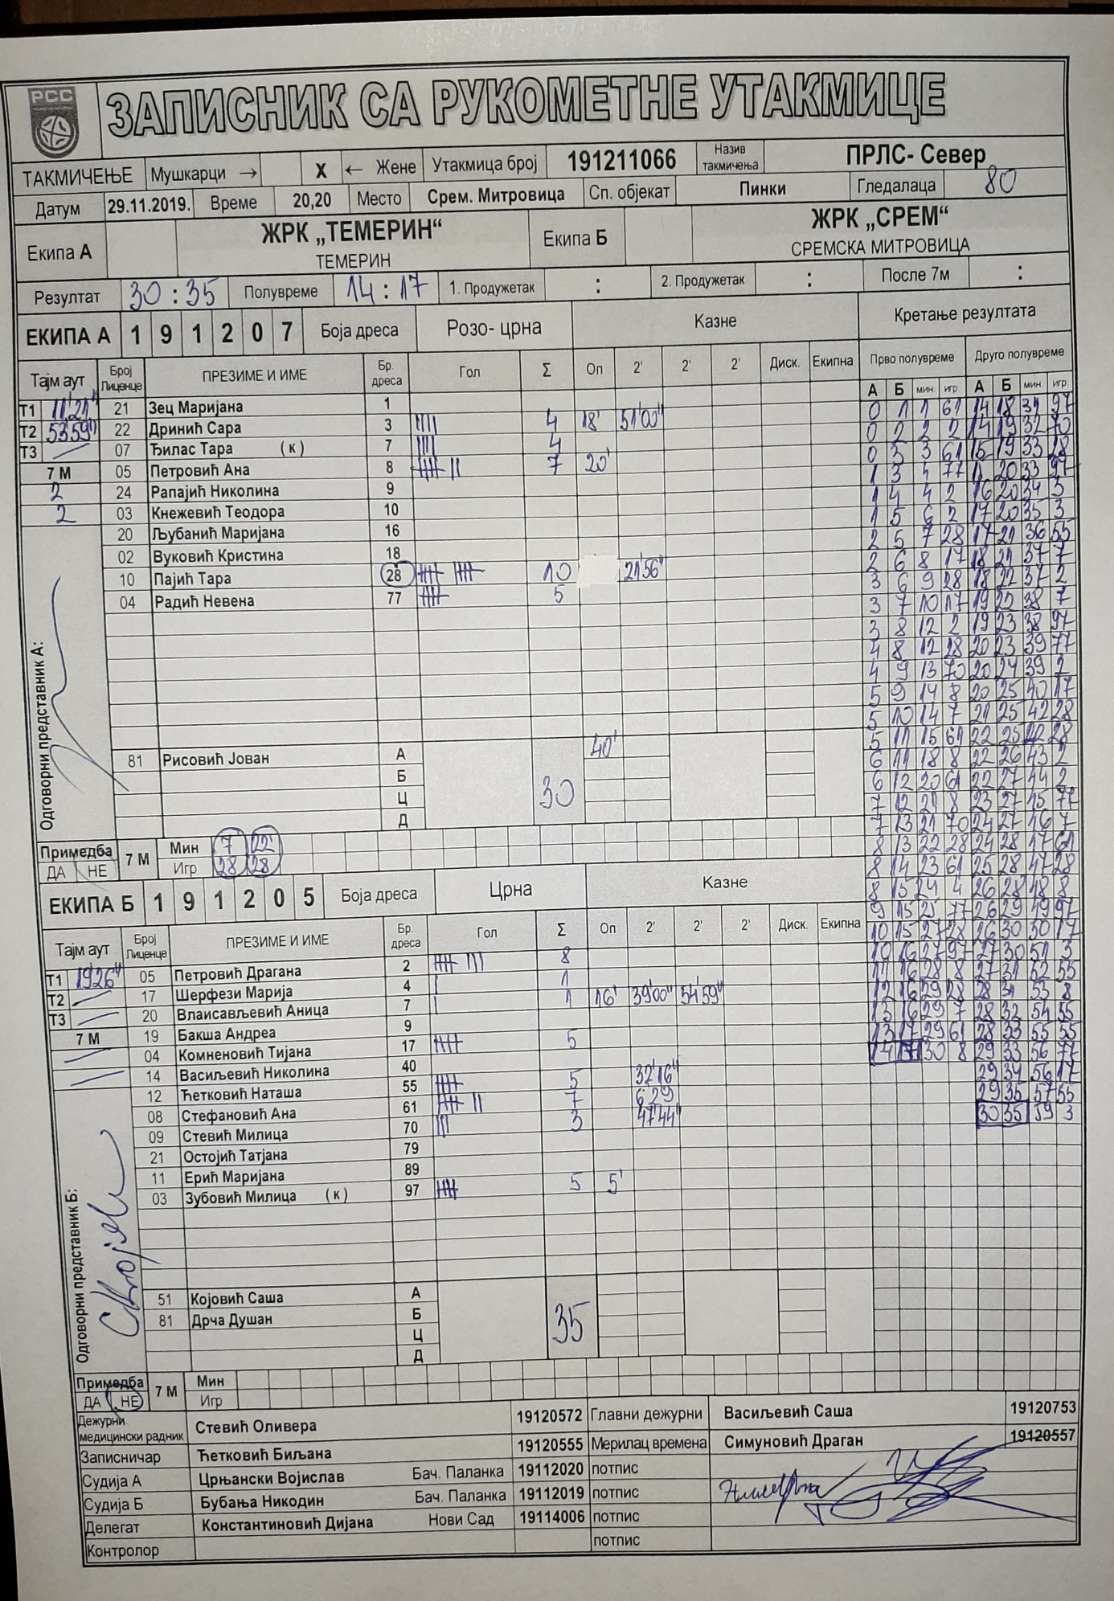 РСС
ЗАПИСНИК СА РУКОМЕТНЕ УТАКМИЦЕ
ТАКМИЧЕЊЕ Мушкарци → X ← Жене Утакмица број 191211066 Назив такмичења ПРЛС- Север
Датум 29.11.2019. Време 20,20 Место Срем. Митровица Сп. објекат Пинки Гледалаца 80
Екипа А ЖРК „ТЕМЕРИН“ Екипа Б ЖРК „СРЕМ“
ТЕМЕРИН СРЕМСКА МИТРОВИЦА
Резултат 30 : 35 Полувреме 14 : 17 1. Продужетак : 2. Продужетак : После 7м :
ЕКИПА А 1 9 1 2 0 7 Боја дреса Розо- црна Казне Кретање резултата
Тајм аут Број Лиценце ПРЕЗИМЕ И ИМЕ Бр. дреса Гол Σ Оп 2' 2' 2' Диск. Екипна Прво полувреме Друго полувреме
А Б мин игр А Б мин игр.
Т1 11,21" 21 Зец Маријана 1
Т2 53 59" 22 Дринић Сара 3 4 18' 51'00"
Т3 07 Ђилас Тара (к) 7 4
7 М 05 Петровић Ана 8 7 20'
2 24 Рапајић Николина 9
2 03 Кнежевић Теодора 10
20 Љубанић Маријана 16
02 Вуковић Кристина 18
10 Пајић Тара 28 10 21'56"
04 Радић Невена 77 5
Одговорни представник А:
81 Рисовић Јован А 40'
Б
30
Ц
Д
Примедба 7 М Мин 7 22'
ДА НЕ Игр 28 28
ЕКИПА Б 1 9 1 2 0 5 Боја дреса Црна Казне
Тајм аут Број Лиценце ПРЕЗИМЕ И ИМЕ Бр. дреса Гол Σ Оп 2' 2' 2' Диск. Екипна
Т1 19 26" 05 Петровић Драгана 2 8
Т2 17 Шерфези Марија 4 1
Т3 20 Влаисављевић Аница 7 1 16' 39'00" 54 59"
7 М 19 Бакша Андреа 9
04 Комненовић Тијана 17 5
14 Васиљевић Николина 40
12 Ћетковић Наташа 55 5 32'16"
08 Стефановић Ана 61 7 6 29
09 Стевић Милица 70 3 47'44"
21 Остојић Татјана 79
11 Ерић Маријана 89
03 Зубовић Милица (к) 97 5 5'
Одговорни представник Б:
51 Којовић Саша А
81 Дрча Душан Б
35
Ц
Д
Примедба 7 М Мин
ДА НЕ Игр
0 1 1 61 14 18 31 97
0 2 2 2 14 19 32 70
0 3 3 61 15 19 33 28
1 4 4 2 16 20 34 3
1 5 6 2 17 20 35 3
2 5 7 28 17 21 36 55
2 6 8 17 18 21 37 7
3 6 9 28 18 22 37 2
3 7 10 17 19 23 38 7
3 8 12 2 19 23 38 97
4 8 12 28 20 23 39 77
4 9 13 70 20 24 39 2
5 9 14 8 20 25 40 17
5 10 14 7 21 25 42 28
6 11 18 8 22 26 43 2
6 12 20 61 22 27 44 2
7 13 21 70 24 27
8 14 23 61 25 28 47 28
12 16 29 28 28 31 53 8
13 16 29 7 28 32 54 55
13 17 29 61 28 33 55 55
14 17 30 8 29 33 56 77
29 34 56 17
29 35 57 55
30 35 59 3
Дежурни медицински радник Стевић Оливера 19120572 Главни дежурни Васиљевић Саша 19120753
Записничар Ћетковић Биљана 19120555 Мерилац времена Симуновић Драган 19120557
Судија А Црњански Војислав Бач. Паланка 19112020 потпис
Судија Б Бубања Никодин Бач. Паланка 19112019 потпис
Делегат Константиновић Дијана Нови Сад 19114006 потпис
Контролор потпис